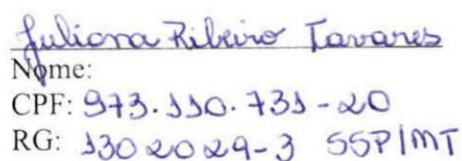 Juliana Ribeiro Tavares
Nome:
CPF: 973.110.731-20
RG: 1302029-3 SSP/MT